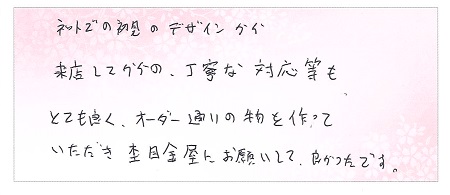 ネットでの初見のデザインから
来店してからの、丁寧な対応等も
とても良く、オーダー通りの物を作って
いただき 杢目金屋にお願いして、良かったです。